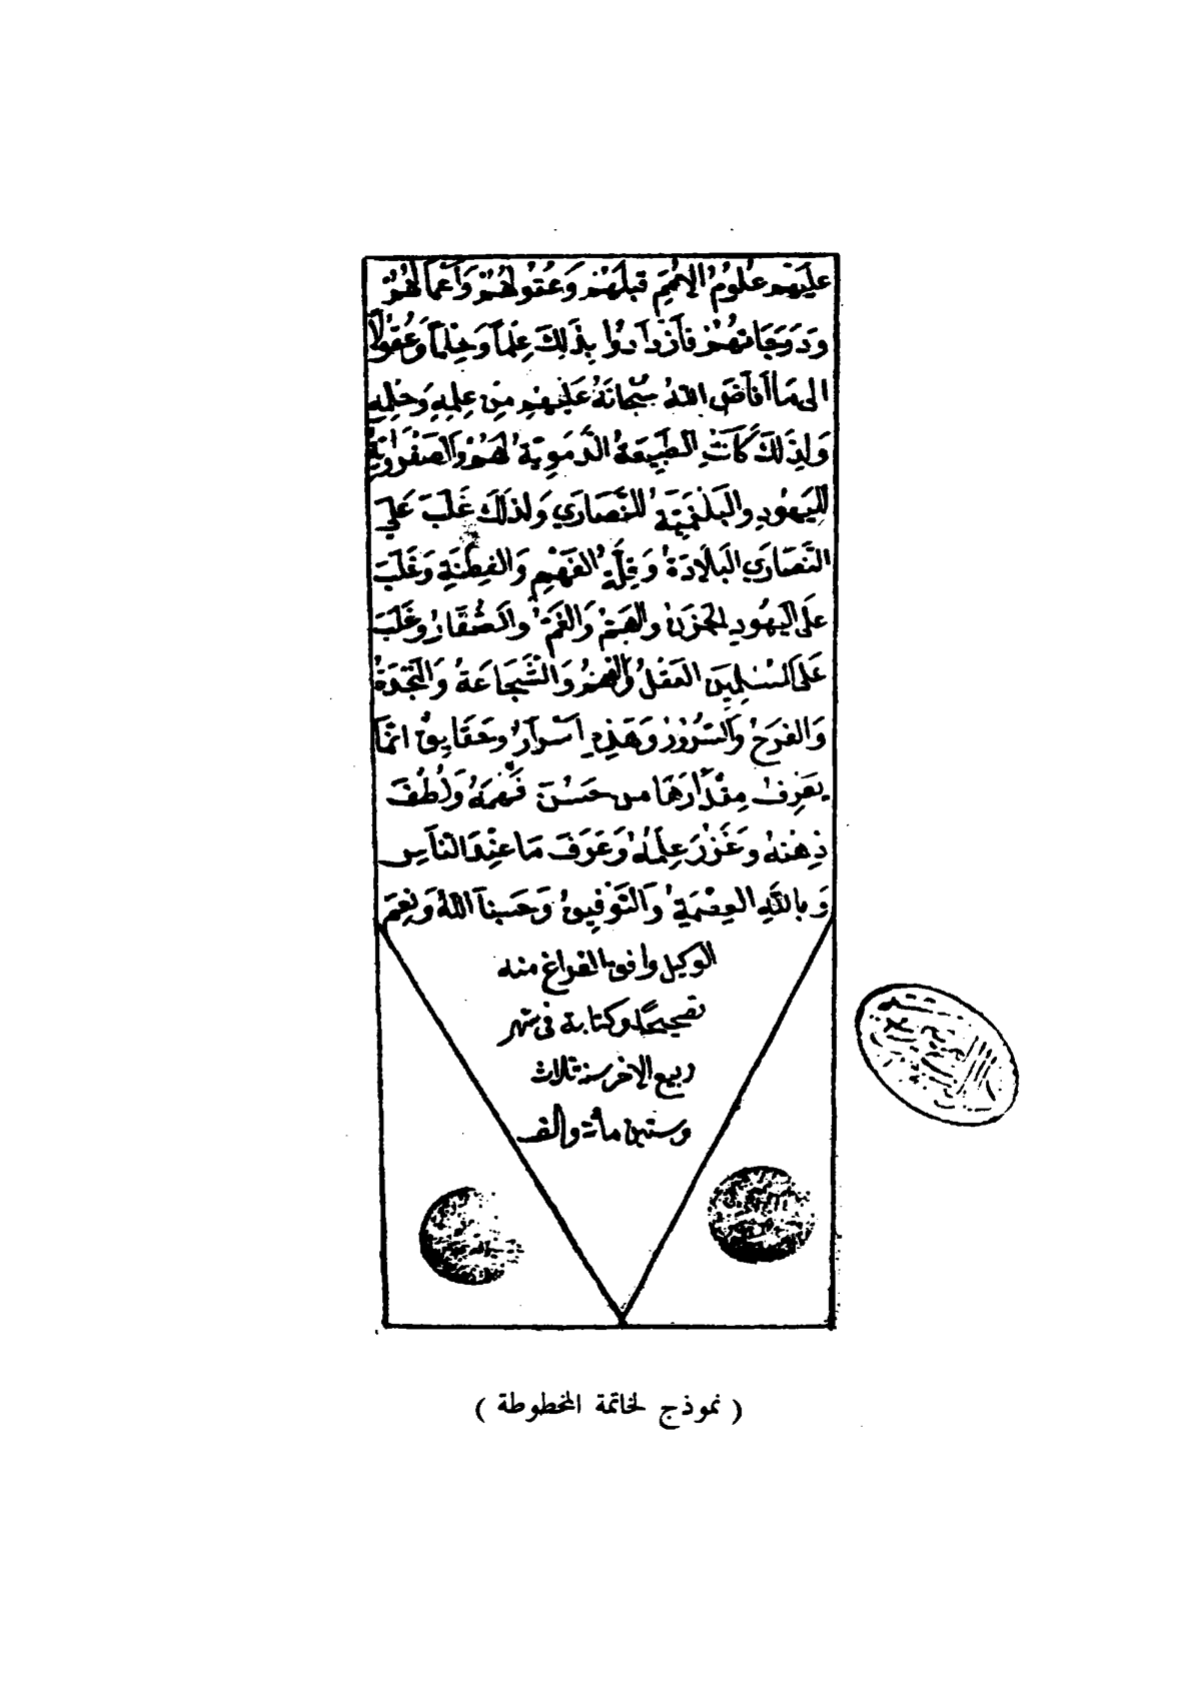 عَليَهم عُلومُ الأمَمِ قبلَهُم وَعُقولُهُمْ وَأعْمَالُهُمْ
وَدَرَجَاتهُمْ فَازدَادُوا بِذَلِكَ عِلماً وَحِلماً وَعُقولًا
الى مَا أفَاضَ اللهُ سُبْحانَهُ عَليهِمْ مِن عِلمِهِ وَحلمِهِ
وَلِذَلكَ كَانَتِ الطَبيعَةُ الدَّمَوِيَّةُ لهُمْ وَالصَفْرَاوِيَّةُ
لليَهُودِ والبَلغَمِيَّةُ للنَّصَارَي وَلذلكَ غَلَبَ عَلَي
النَّصَارَي البَلَادَةُ وَقِلَّةُ الفَهْمِ وَالفِطْنَةِ وَغَلَبَ
عَلَى اليَهُودِ الحزنُ والهَمُّ وَالغَمُّ والصَّغَارُ وغَلَبَ
عَلَى المُسْلِمِينَ العَقلُ والفهمُ وَالشَّجَاعَةُ وَالنَّجْدَةُ
وَالفَرَحُ وَالسّرُورُ وَهَذِهِ اسْرَارُ وحَقَايِقُ انمَّا
يَعرِفُ مِقْدَارَهَا من حَسُنَ فَهْمُهُ وَلَطُفَ
ذِهْنهُ وَغَزُرَ عِلمُهُ وَعَرَفَ مَا عِنْدَ النَّاسِ
وَبِاللهِ العِصْمَةِ وَالتَوْفِيقُ وَحَسبنا اللهُ وَنِعْمَ
الوكيل وافق الفراغ منه
تصحيحًا وكتابة في شهر
ربيع الاخر سنة ثلاث
وستين مائة والف
( نموذج لخاتمة المخطوطة )